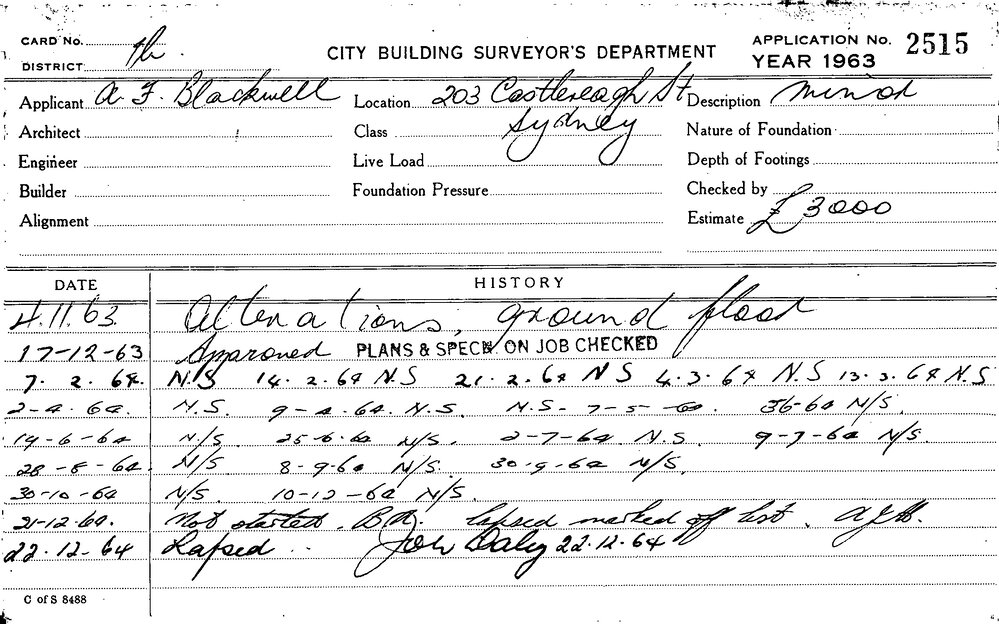 CARD No.
DISTRICT th.
CITY BUILDING SURVEYOR'S DEPARTMENT
APPLICATION No. 2515
YEAR 1963
Applicant A. F. Blackwell Location 203 Castlereagh St Description Minor
Architect Class Sydney Nature of Foundation
Engineer Live Load Depth of Footings
Builder Foundation Pressure Checked by
Alignment Estimate £3000
DATE HISTORY
4.11.63 Alterations, ground floor
17-12-63 Approved PLANS & SPECN. ON JOB CHECKED
7. 2. 64. N.S 14. 2. 64 N.S 21. 2. 64 N S 4. 3. 64 N.S 13. 3. 64 N.S
2-4-64. N.S. 9-4-64. N.S. N.S- 7-5-64. N/S.
19-6-64 N/S. 25-6-64 N/S. 2-7-64. N.S. 9-7-64 N/S.
28-8-64 N/S 8-9-64 N/S. 30-9-64 N/S.
30-10-64 N/S. 10-12-64 N/S.
21-12-64. Not started. B.A. lapsed marked off list.
22.12-64 Lapsed .. John Daley 22.12.64
C of S 8488